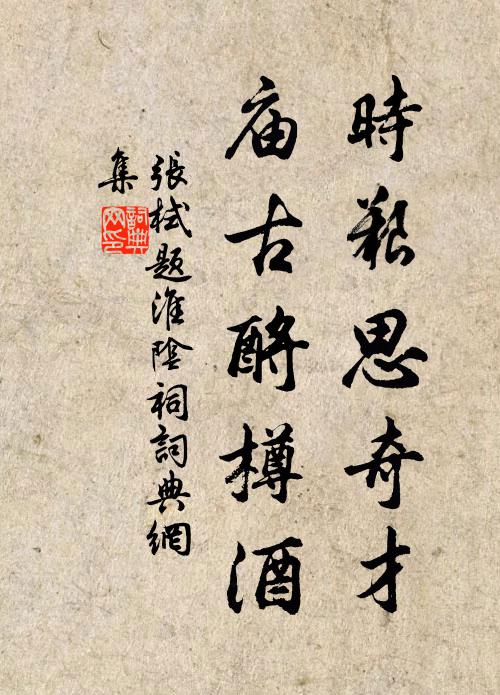 時艱思奇才
庙古酹樽酒
張栻題淮陰祠詞典網
集
詞典
网印